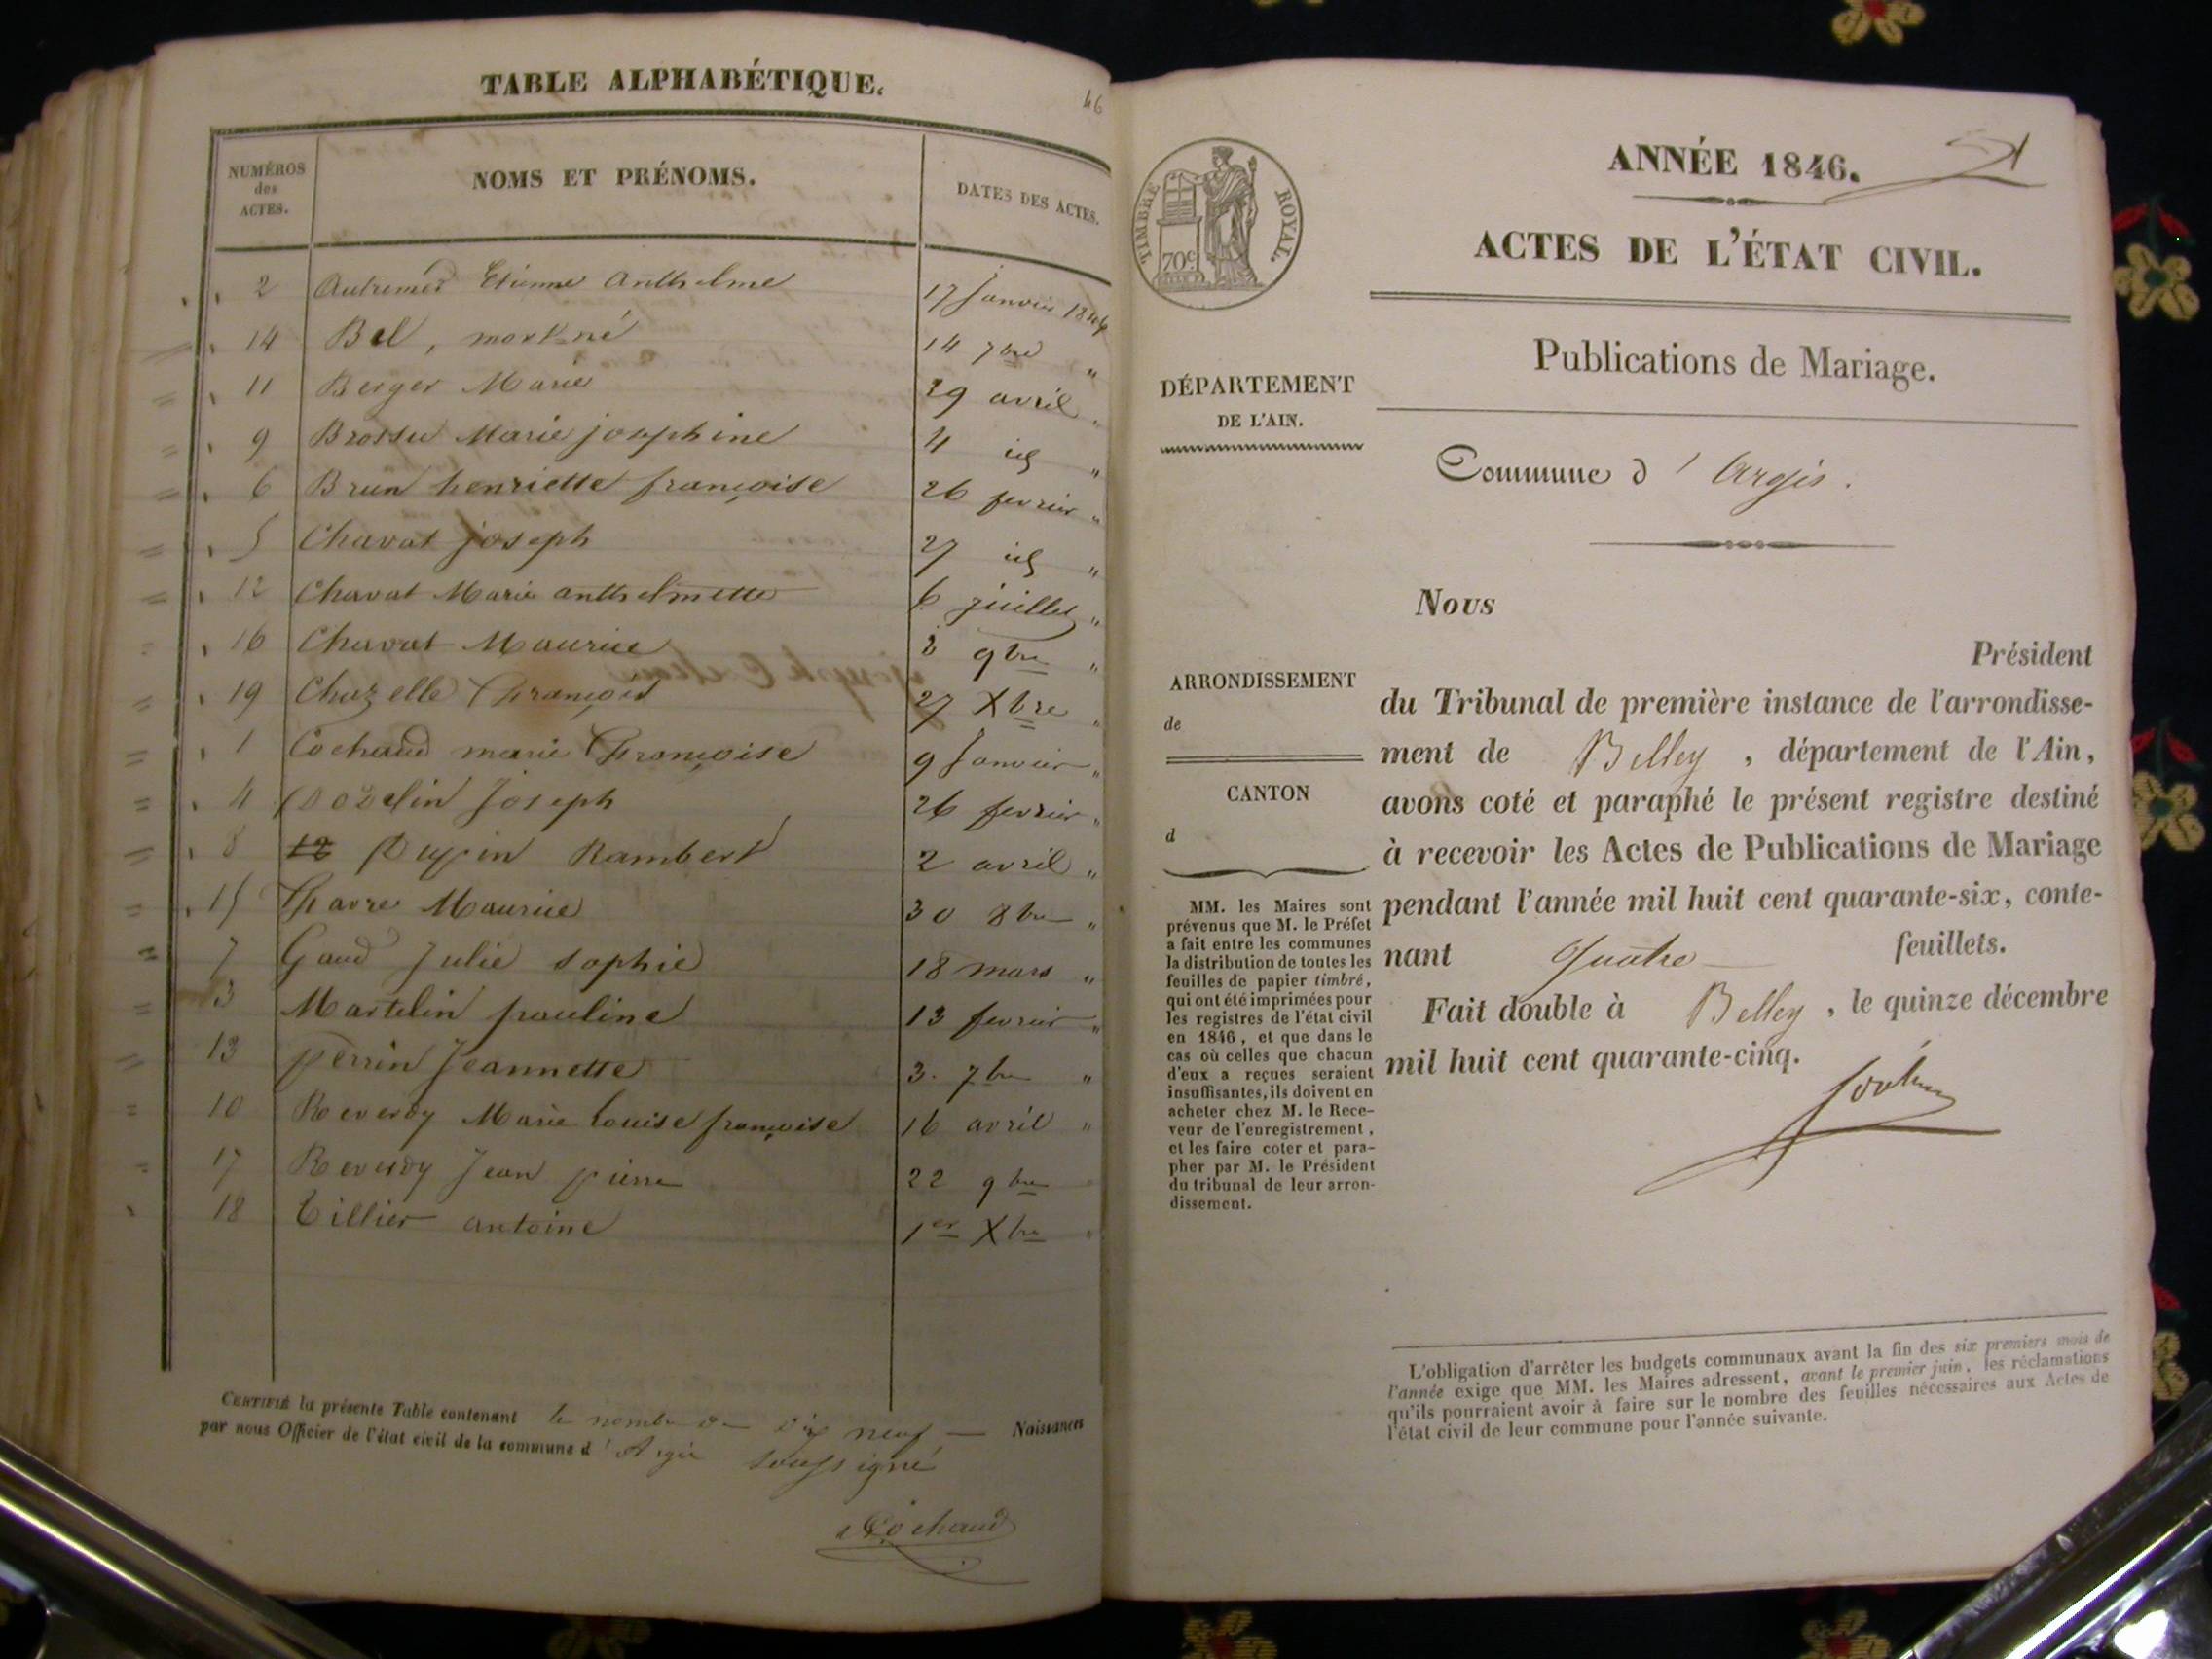 TABLE ALPHABÉTIQUE.
46
NUMÉROS
des
ACTES.
NOMS ET PRÉNOMS.
DATES DES ACTES.
2 Etienne Anthelme 17 Janvier 1846
14 Bel, mort-né 14 7bre "
11 Berger Marie 29 avril "
9 Brossu Marie josephine 4 id "
6 Brun henriette françoise 26 fevrier "
5 Chavat joseph 27 id "
12 Chavat Marie anthelmette 6 juillet "
16 Chavat Maurice 2 9bre "
19 Chazelle François 27 Xbre "
1 Cochaud marie Françoise 9 Janvier "
4 Joseph 26 fevrier "
8 12 Dupin Rambert 2 avril "
15 Favre Maurice 30 8bre "
7 Gaud Julie sophie 18 mars "
3 Martelin pauline 13 fevrier "
13 perrin Jeannette 3. 7bre "
10 Reverdy Marie Louise françoise 16 avril "
17 Reverdy Jean pierre 22 9bre
18 Tillier antoine 1er Xbre
CERTIFIÉ la présente Table contenant le nombre de dix neuf — Naissances
par nous Officier de l'état civil de la commune d'Argis soussigné
Cochaud
TIMBRE ROYAL.
70c
ANNÉE 1846.
ACTES DE L'ÉTAT CIVIL.
Publications de Mariage.
DÉPARTEMENT
DE L'AIN.
Commune d'Argis.
ARRONDISSEMENT
de
CANTON
d
MM. les Maires sont
prévenus que M. le Préfet
a fait entre les communes
la distribution de toutes les
feuilles de papier timbré,
qui ont été imprimées pour
les registres de l'état civil
en 1846, et que dans le
cas où celles que chacun
d'eux a reçues seraient
insuffisantes, ils doivent en
acheter chez M. le Rece-
veur de l'enregistrement,
et les faire coter et para-
pher par M. le Président
du tribunal de leur arron-
dissement.
Nous
Président
du Tribunal de première instance de l'arrondisse-
ment de Belley, département de l'Ain,
avons coté et paraphé le présent registre destiné
à recevoir les Actes de Publications de Mariage
pendant l'année mil huit cent quarante-six, conte-
nant Quatre feuillets.
Fait double à Belley, le quinze décembre
mil huit cent quarante-cinq.
L'obligation d'arrêter les budgets communaux avant la fin des six premiers mois de
l'année exige que MM. les Maires adressent, avant le premier juin, les réclamations
qu'ils pourraient avoir à faire sur le nombre des feuilles nécessaires aux Actes de
l'état civil de leur commune pour l'année suivante.